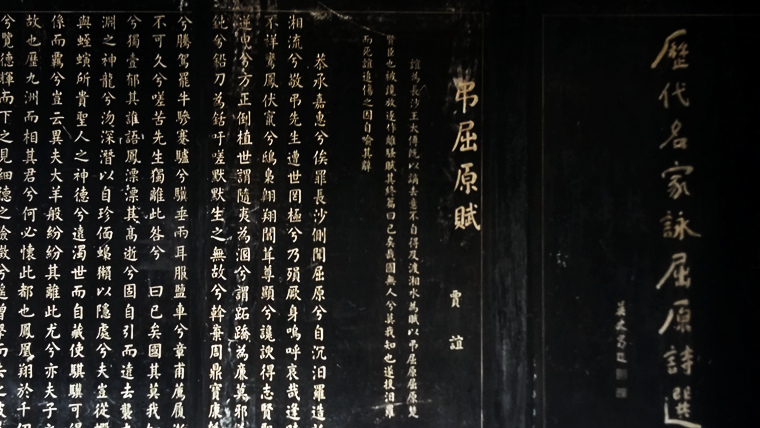 歷代名家詠屈原詩選
弔屈原賦
賈誼
誼為長沙王太傅既以謫去意不自得及渡湘水為賦以弔屈原屈原楚
賢臣也被讒放逐作離騷賦其終篇曰已矣哉國無人兮莫我知也遂投汨羅
而死誼追傷之因自喻其辭
恭承嘉惠兮俟罪長沙側聞屈原兮自沉汨羅造
湘流兮敬弔先生遭世罔極兮乃殞厥身嗚呼哀哉逢時
不祥鸞鳳伏竄兮鴟梟翱翔闒茸尊顯兮讒諛得志賢聖
逆曳兮方正倒植世謂隨夷為溷兮謂跖蹻為廉莫邪
鈍兮鉛刀為銛吁嗟默默生之無故兮斡棄周鼎寶康
兮騰駕罷牛驂蹇驢兮驥垂兩耳服鹽車兮章甫薦履
不可久兮嗟苦先生獨離此咎兮 曰已矣國其莫我
兮獨壹郁其誰語鳳漂漂其高逝兮固自引而遠去襲九
淵之神龍兮沕深潛以自珍偭蟂獺以隱處兮夫豈從蝦
與蛭螾所貴聖人之神德兮遠濁世而自藏使騏驥可得
係而羈兮豈云異夫犬羊般紛紛其離此尤兮亦夫子之
故也歷九洲而相其君兮何必懷此都也鳳凰翔於千仞
兮覽德輝而下之見細德之險徵兮遙增擊而去之彼